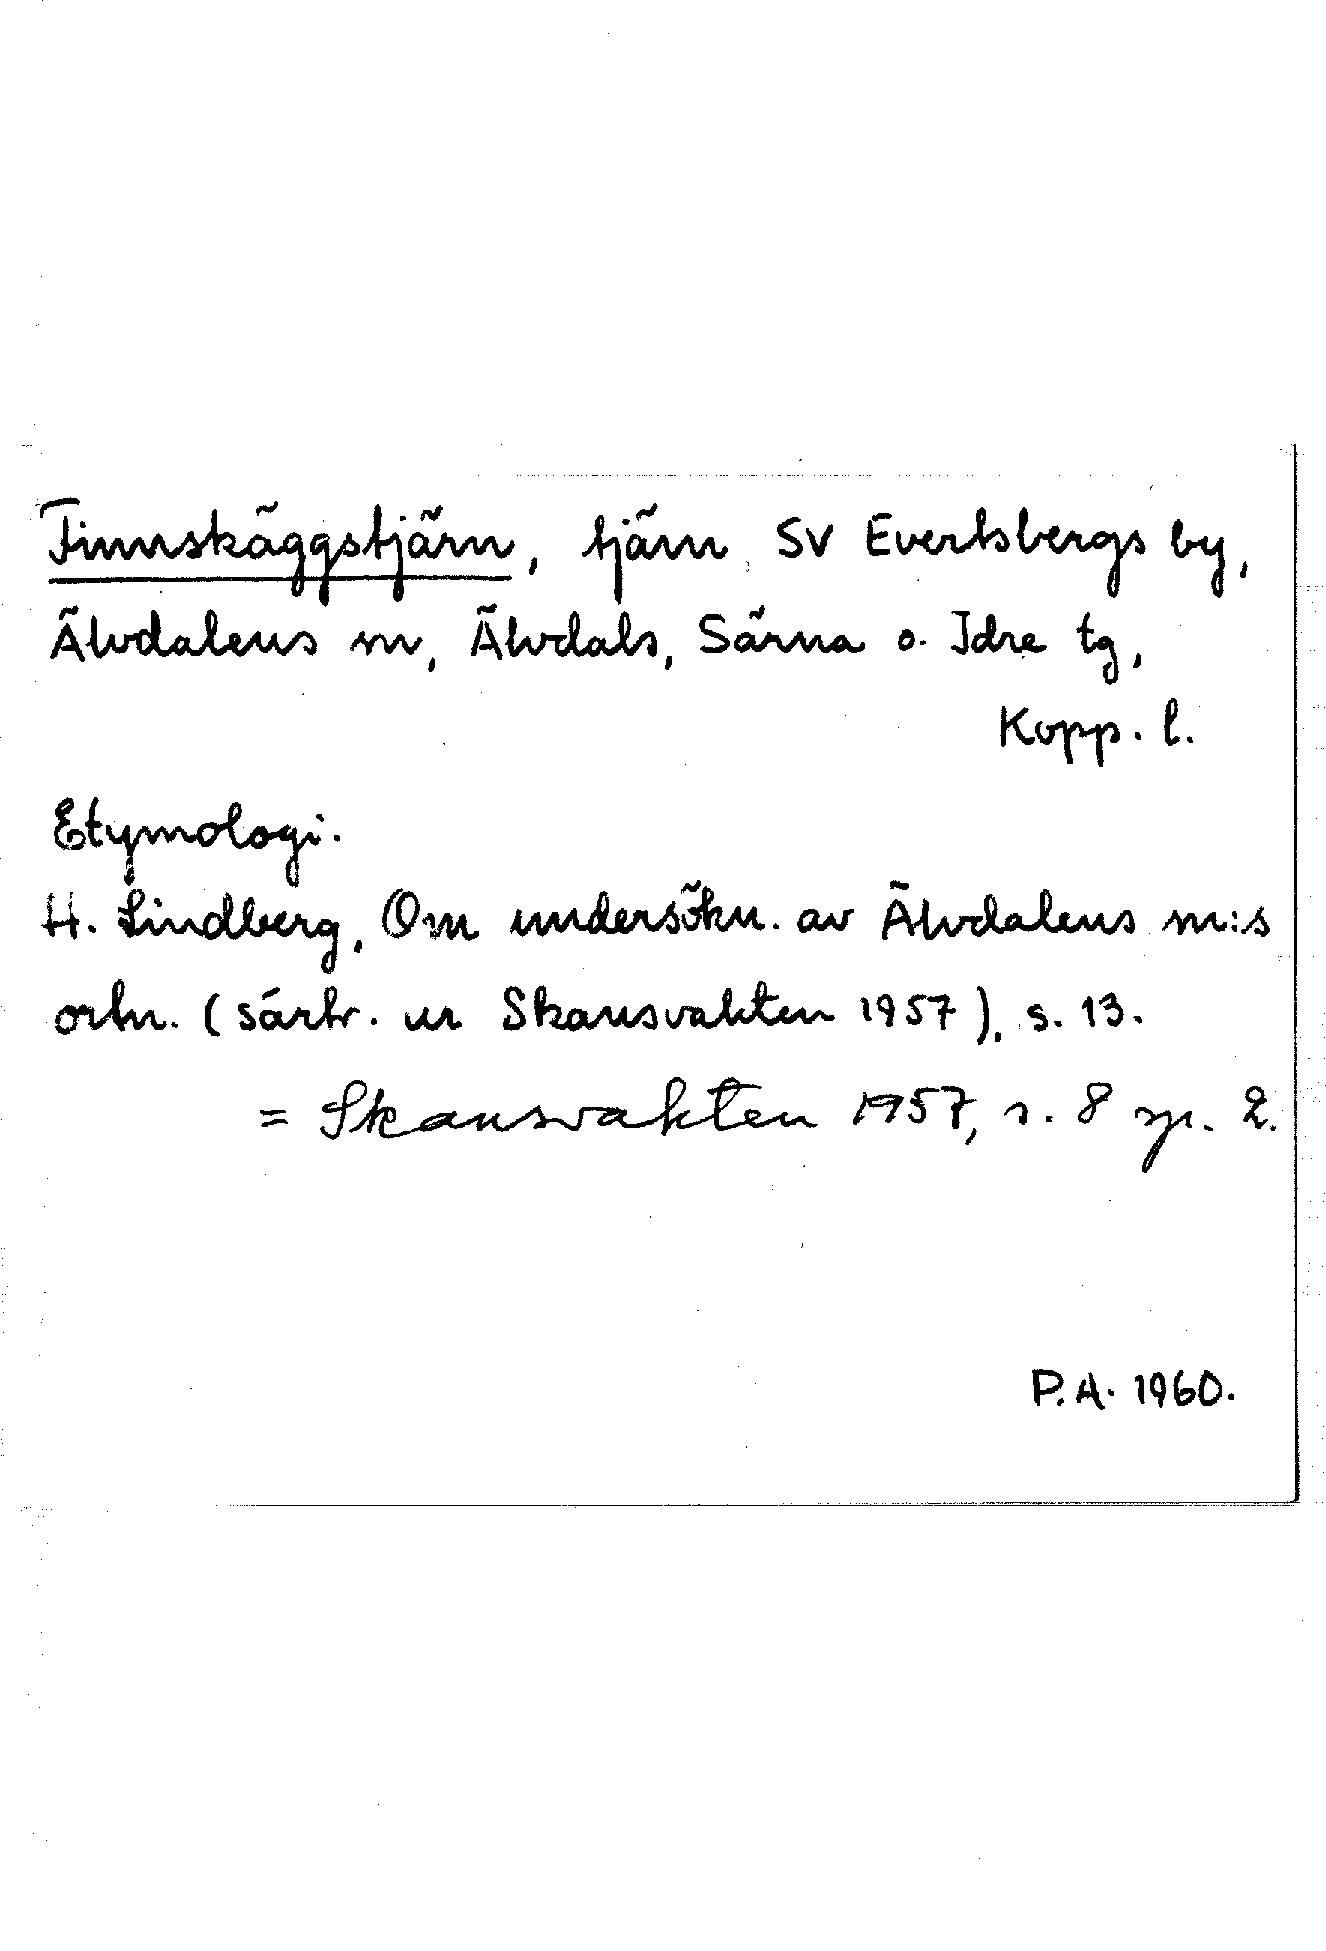 Finnskäggstjärn, tjärn SV Evertsbergs by,
Älvdalens m, Älvdals, Särna o. Idre tg,
Kopp. l.
Etymologi.
H. Lindberg, Om undersökn. av Älvdalens m:s
ortn. (särtr. ur Skansvakten 1957), s. 13.
= Skansvakten 1957, s. 8 sp. 2.
P.A. 1960.